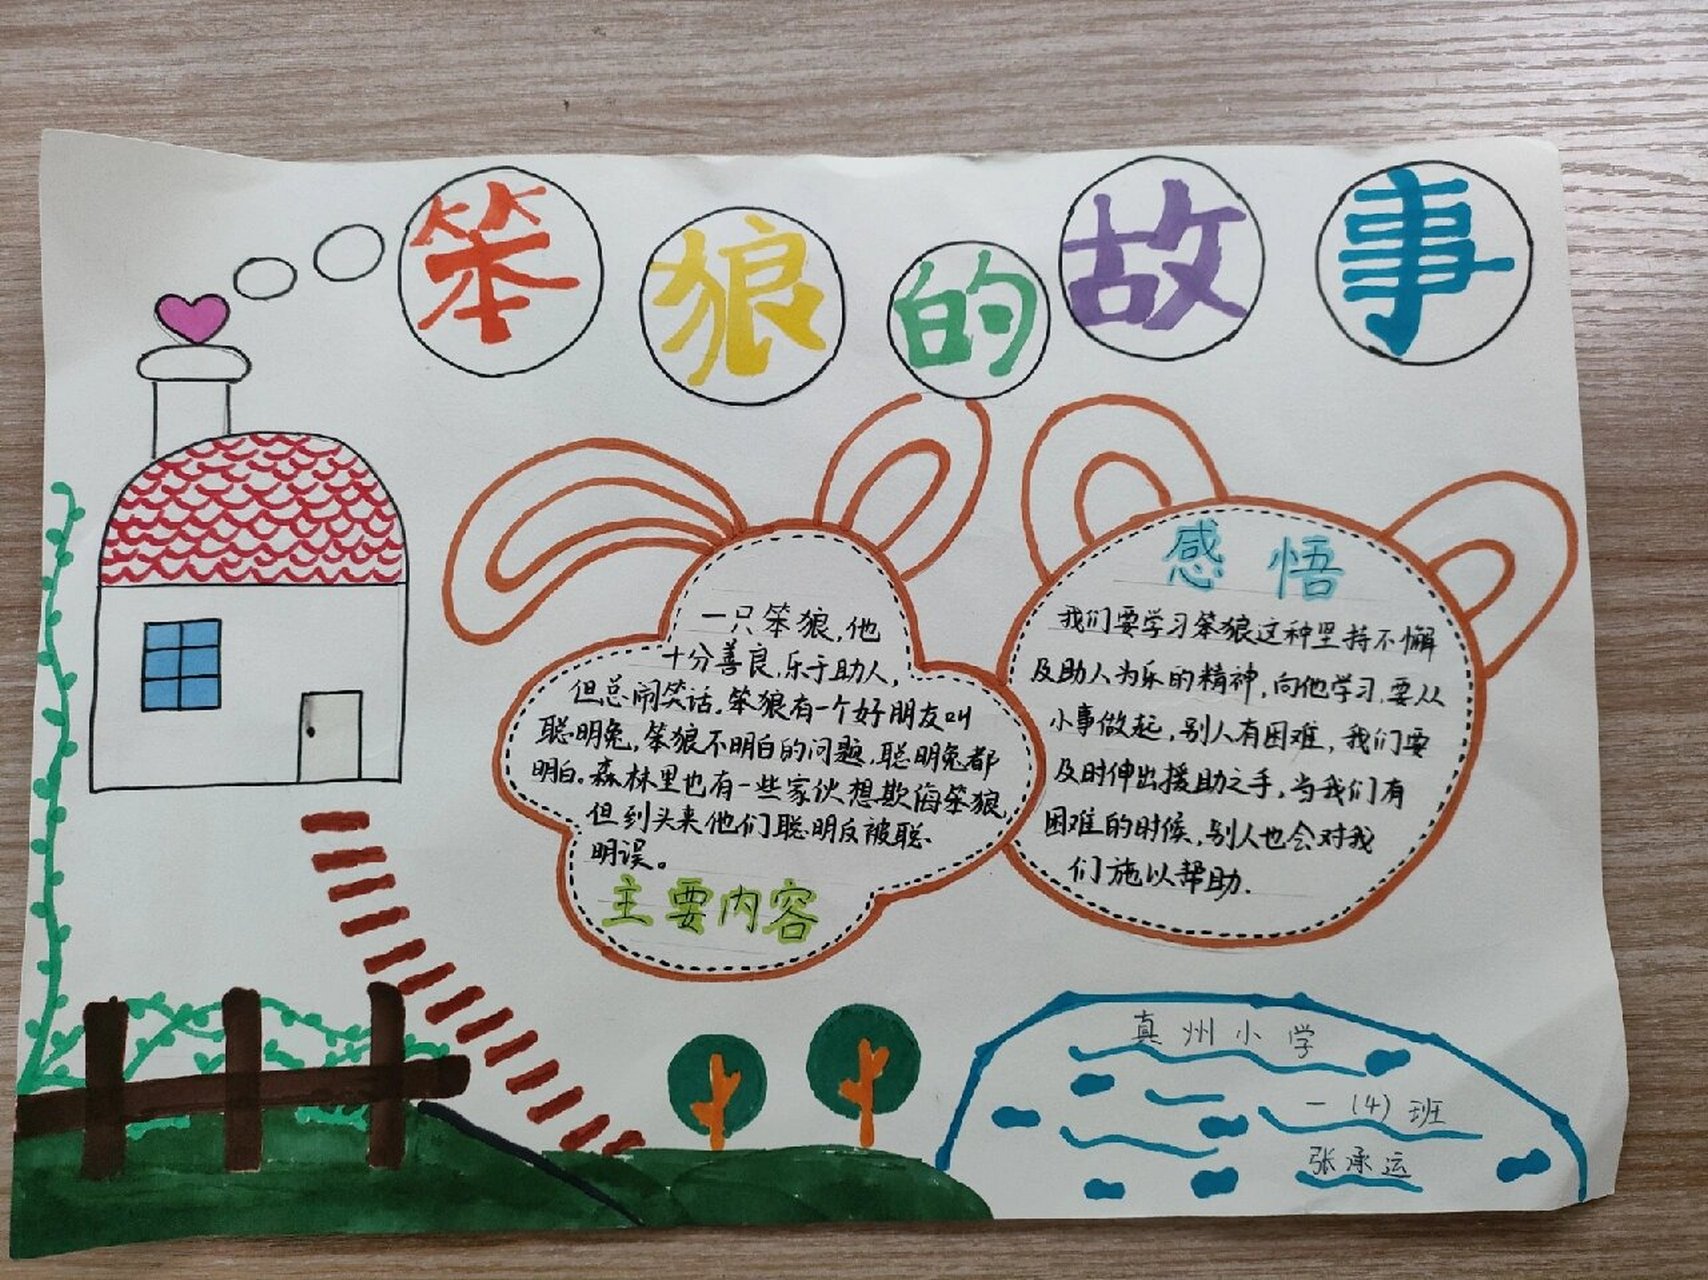 笨狼的故事
一只笨狼,他
十分善良,乐于助人,
但总闹笑话。笨狼有一个好朋友叫
聪明兔,笨狼不明白的问题,聪明兔都
明白。森林里也有一些家伙想欺侮笨狼,
但到头来他们聪明反被聪
明误。
主要内容
感悟
我们要学习笨狼这种坚持不懈
及助人为乐的精神,向他学习,要从
小事做起,别人有困难,我们要
及时伸出援助之手,当我们有
困难的时候,别人也会对我
们施以帮助.
真州小学
一(4)班
张承运